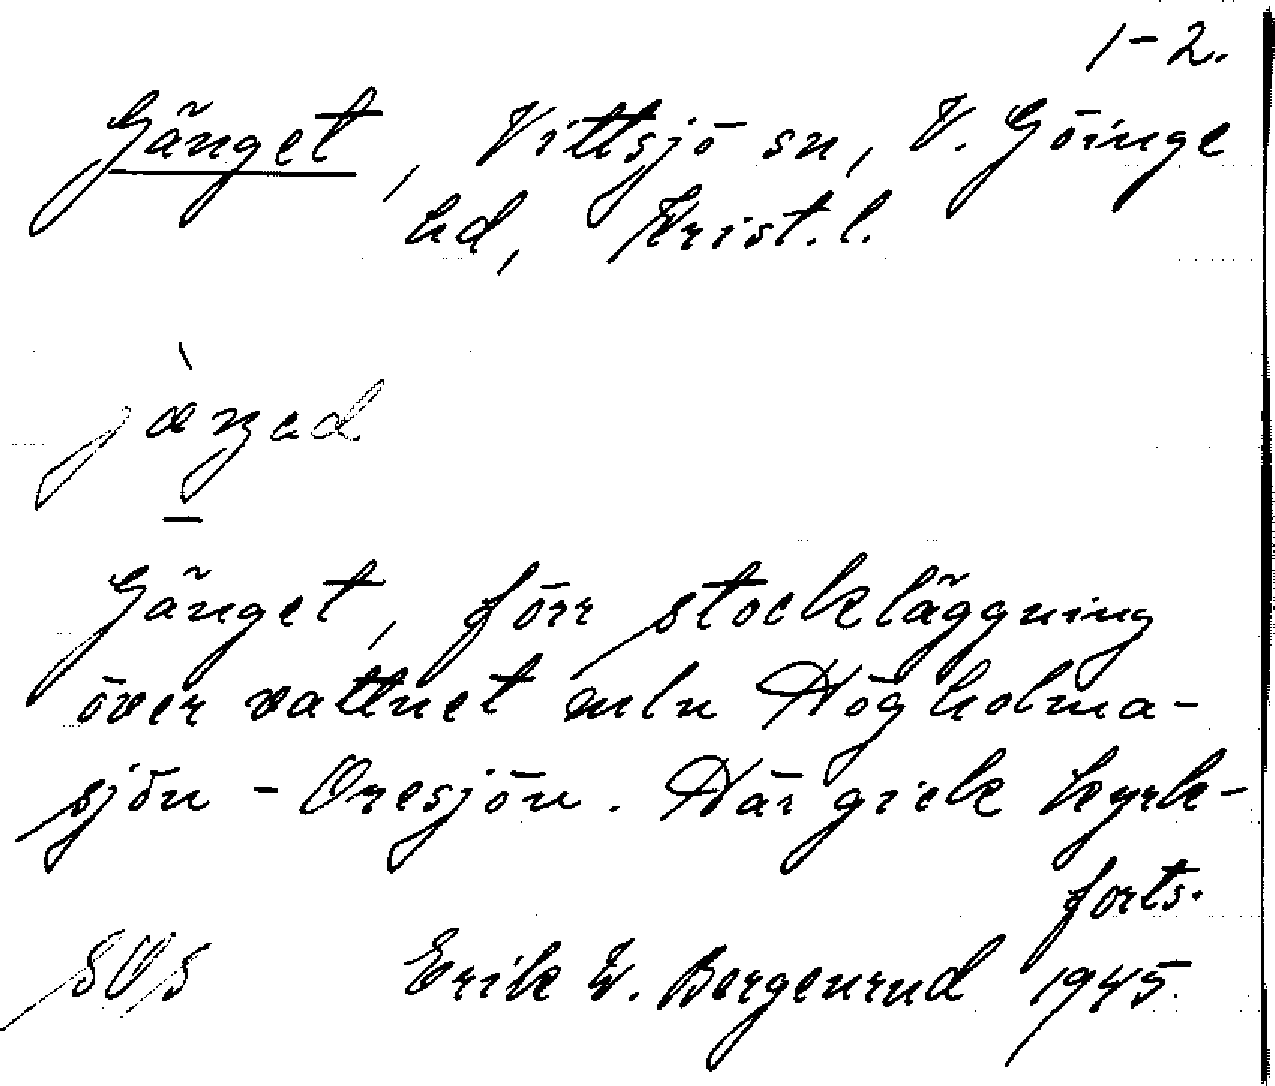 1-2.
Gänget, Vittsjö sn, V. Göinge
hd, Krist.l.
jæ̀ŋad
Gänget, förr stockläggning
över vattnet mln Högholma-
sjön - Oresjön. Här gick kyrk-
forts.
SOS Erik W. Bergenrud 1945.